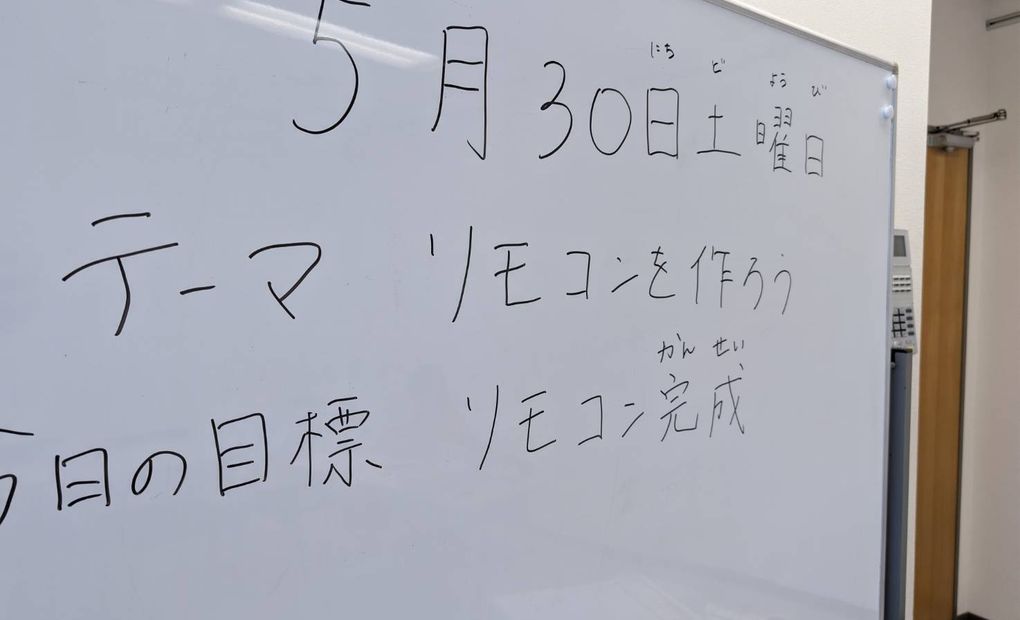 にち ど よう び
5月30日土曜日
テーマ リモコンを作ろう
かん せい
今日の目標 リモコン完成